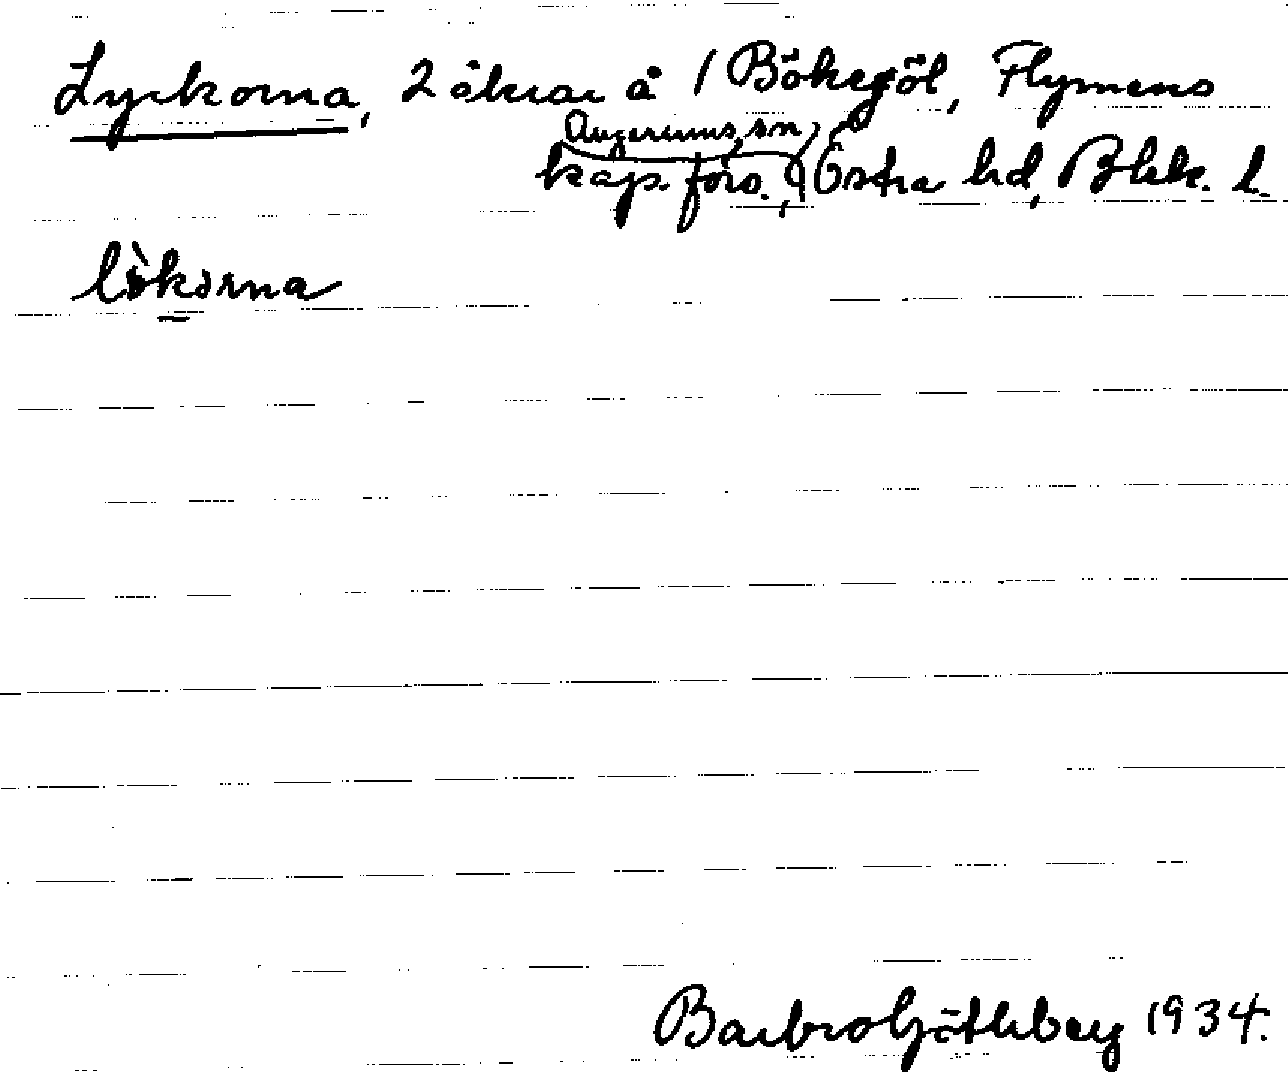 Lyckorna, 2 åkrar å 1 Bökegöl, Flymens
Augerums sn,
kap. förs., Östra hd, Blek. l.
lök
Barbro Götheberg 1934.